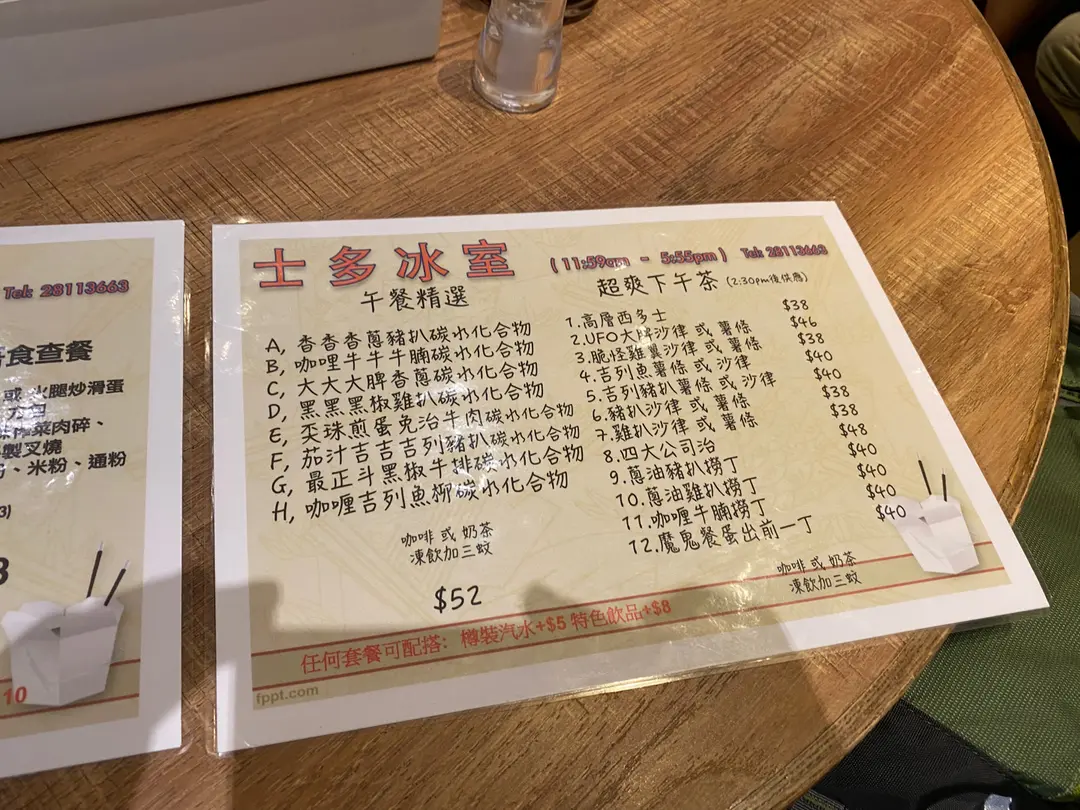 Tel: 28113663
食查餐
或 火腿炒滑蛋
菜肉碎、
製叉燒
、米粉、通粉
10
士多冰室
(11:59am - 5:55pm) Tel: 28113663
午餐精選
A, 香香香蔥豬扒碳水化合物
B, 咖哩牛牛牛腩碳水化合物
C, 大大大脾香蔥碳水化合物
D, 黑黑黑椒雞扒碳水化合物
E, 奀珠煎蛋免治牛肉碳水化合物
F, 茄汁吉吉吉列豬扒碳水化合物
G, 最正斗黑椒牛排碳水化合物
H, 咖喱吉列魚柳碳水化合物
咖啡 或 奶茶
凍飲加三蚊
$52
超爽下午茶 (2:30pm後供應)
1.高層西多士 $38
2.UFO大脾沙律 或 薯條 $46
3.脆怪雞翼沙律 或 薯條 $38
4.吉列魚薯條 或 沙律 $40
5.吉列豬扒薯條 或 沙律 $40
6.豬扒沙律 或 薯條 $38
7.雞扒沙律 或 薯條 $38
8.四大公司治 $48
9.蔥油豬扒撈丁 $40
10.蔥油雞扒撈丁 $40
11.咖喱牛腩撈丁 $40
12.魔鬼餐蛋出前一丁 $40
咖啡 或 奶茶
凍飲加三蚊
任何套餐可配搭: 樽裝汽水+$5 特色飲品+$8
fppt.com